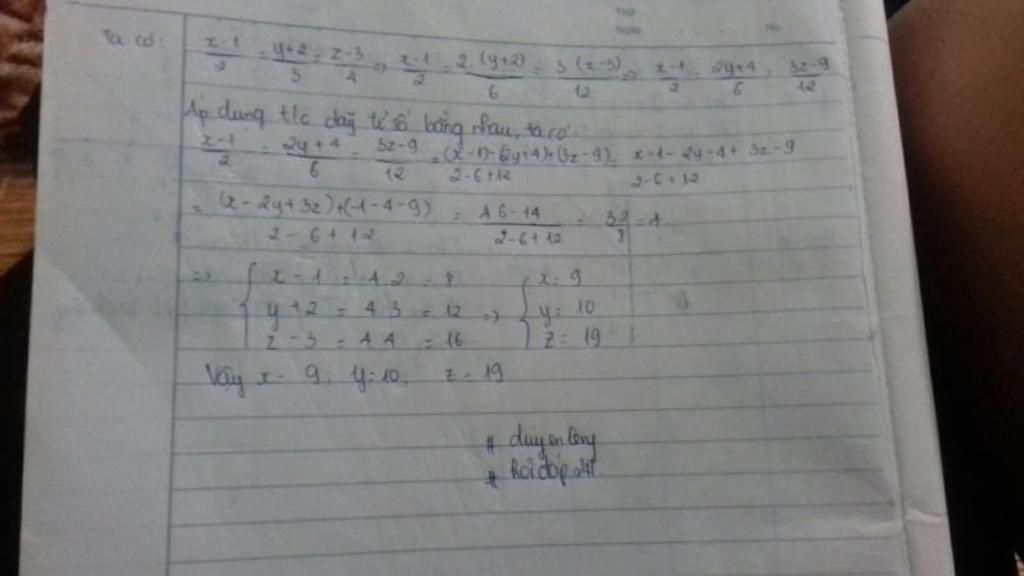 Ta có: \frac{x-1}{2} = \frac{y+2}{3} = \frac{z-3}{4} => \frac{x-1}{2} = \frac{2(y+2)}{6} = \frac{3(z-3)}{12} => \frac{x-1}{2} = \frac{2y+4}{6} = \frac{3z-9}{12}
Áp dụng t/c dãy tỉ số bằng nhau, ta có
\frac{x-1}{2} = \frac{2y+4}{6} = \frac{3z-9}{12} = \frac{(x-1)-(2y+4)+(3z-9)}{2-6+12} = \frac{x-1-2y-4+3z-9}{2-6+12}
= \frac{(x-2y+3z)+(-1-4-9)}{2-6+12} = \frac{46-14}{2-6+12} = \frac{32}{8} = 4
=> { x-1 = 4.2 = 8 { x = 9
y+2 = 4.3 = 12 => y = 10
z-3 = 4.4 = 16 z = 19
Vậy x = 9; y = 10; z = 19
#
# hỏi đáp 247